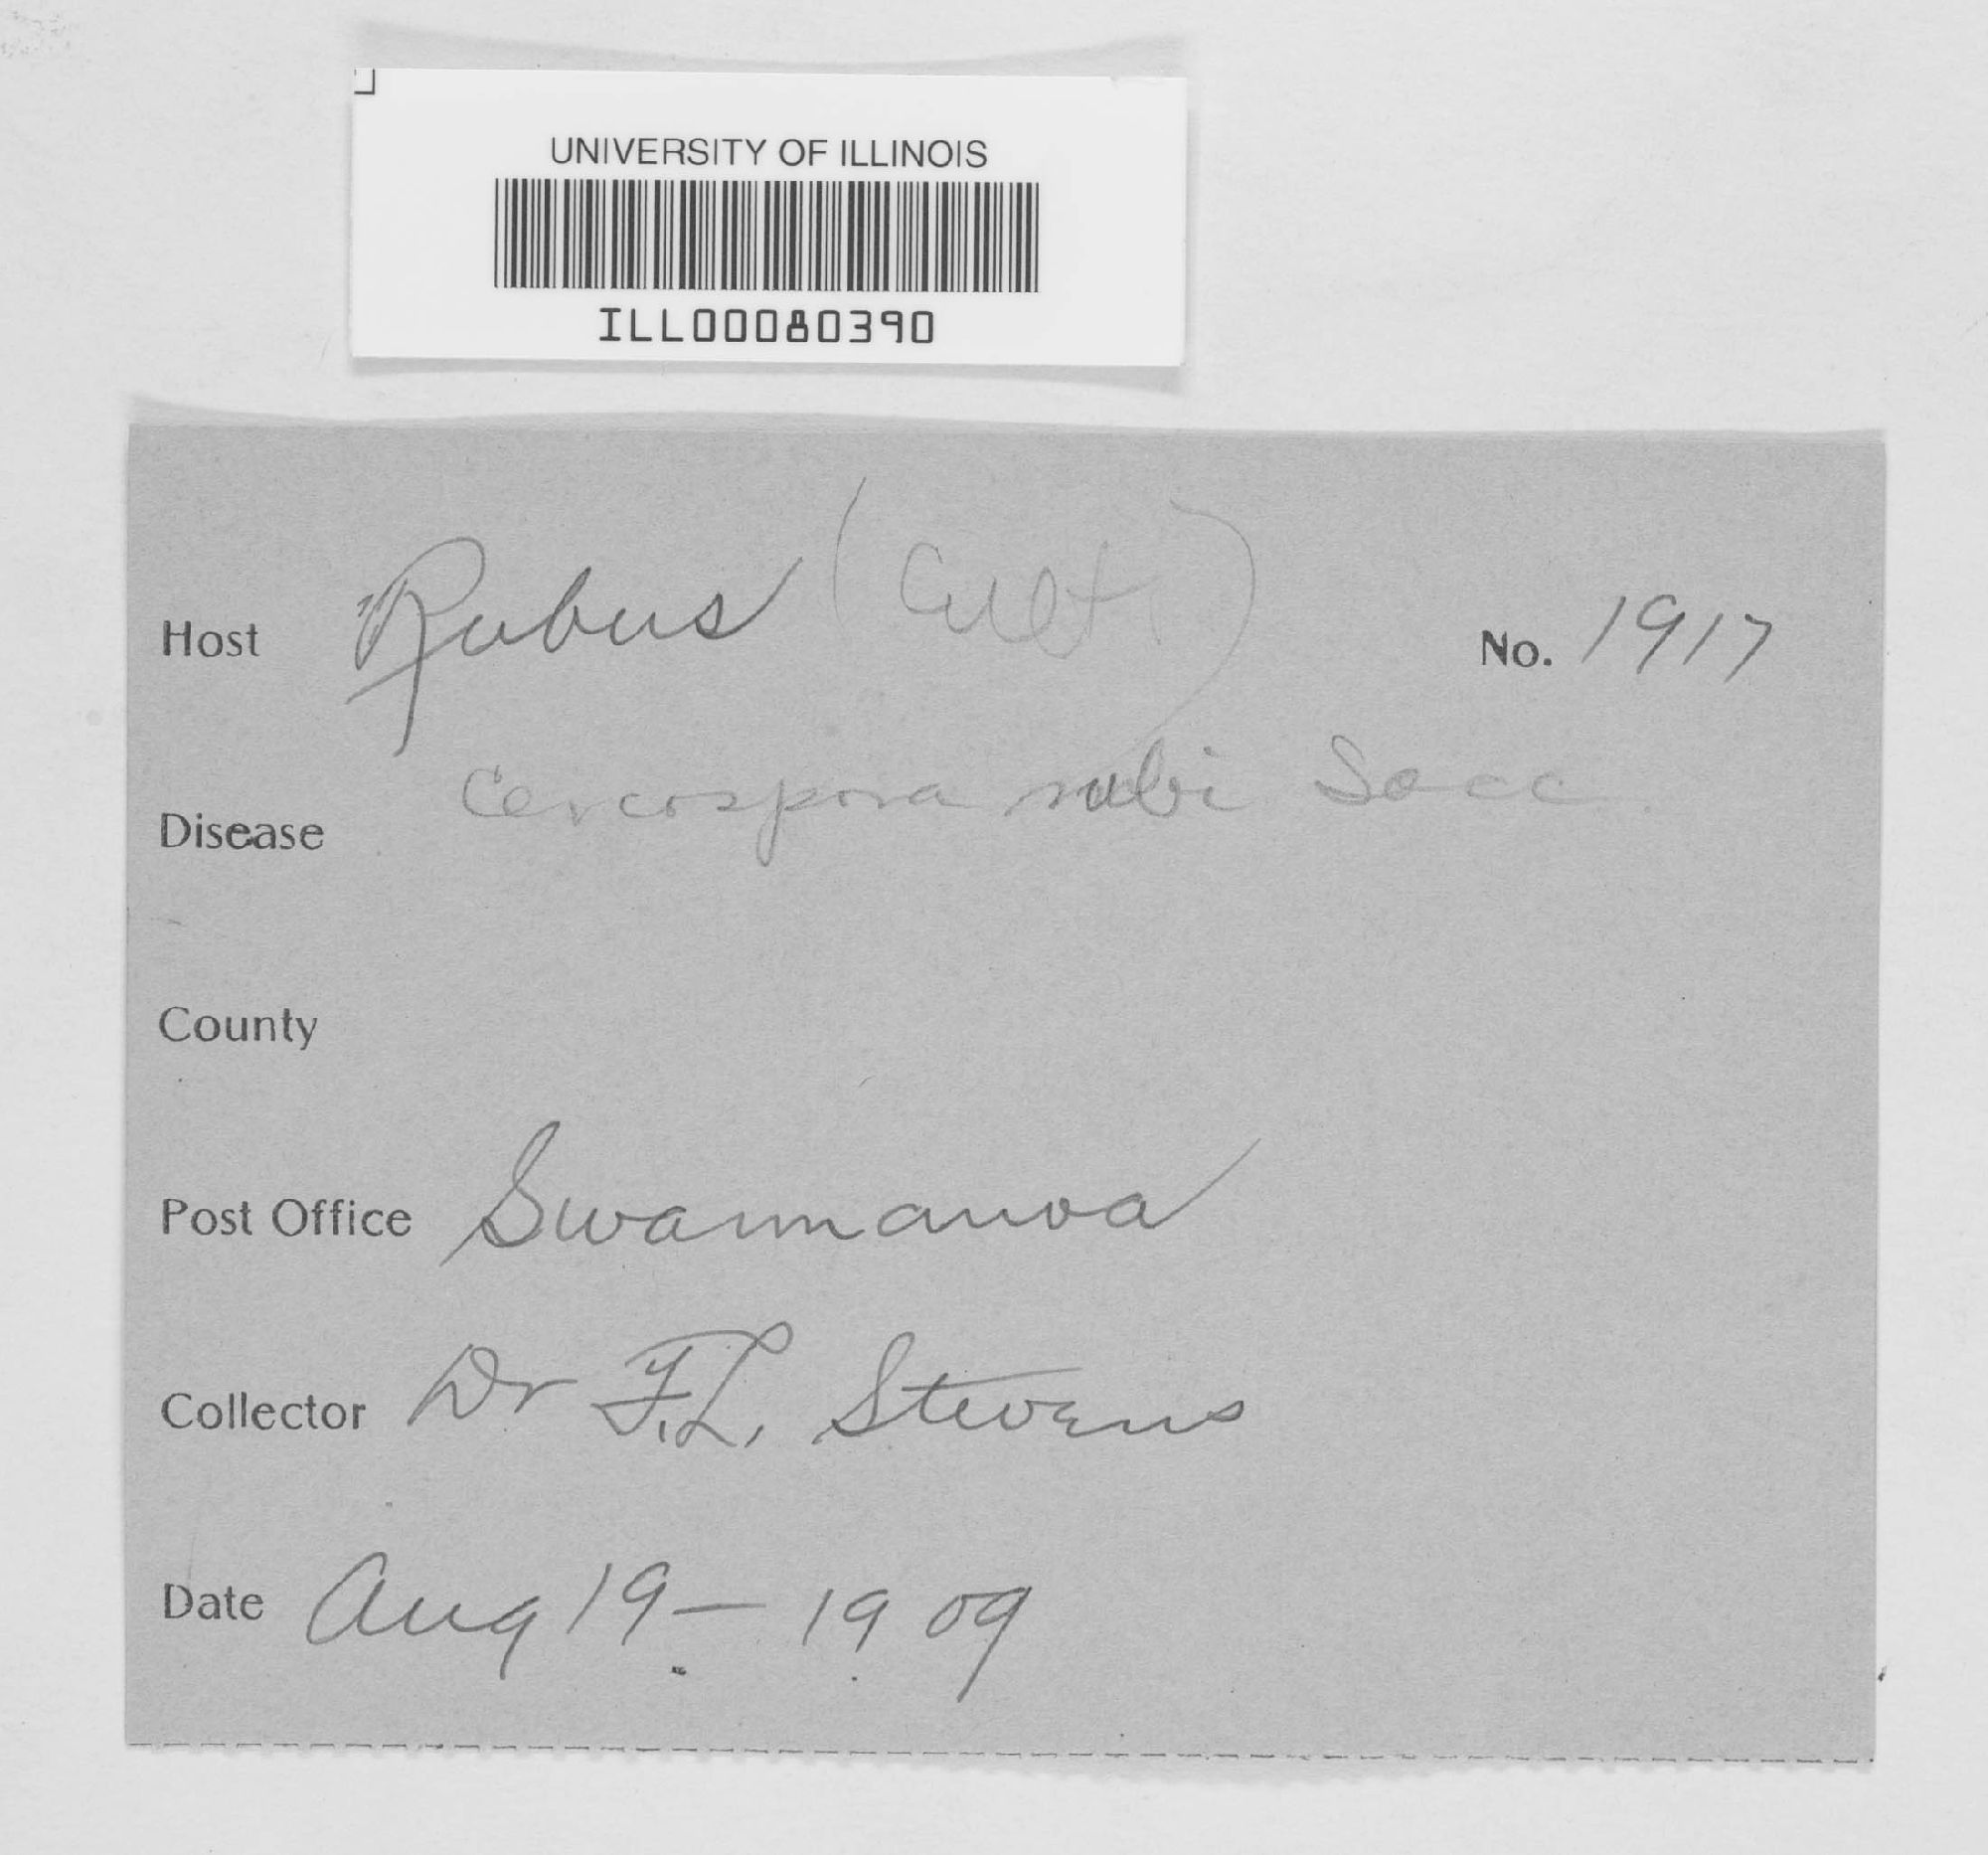 UNIVERSITY OF ILLINOIS
ILL00080390
Host Rubus (Cult.) No. 1917
Disease Cercospora rubi Sacc.
County
Post Office Swannanoa
Collector Dr F.L. Stevens
Date Aug 19 - 1909